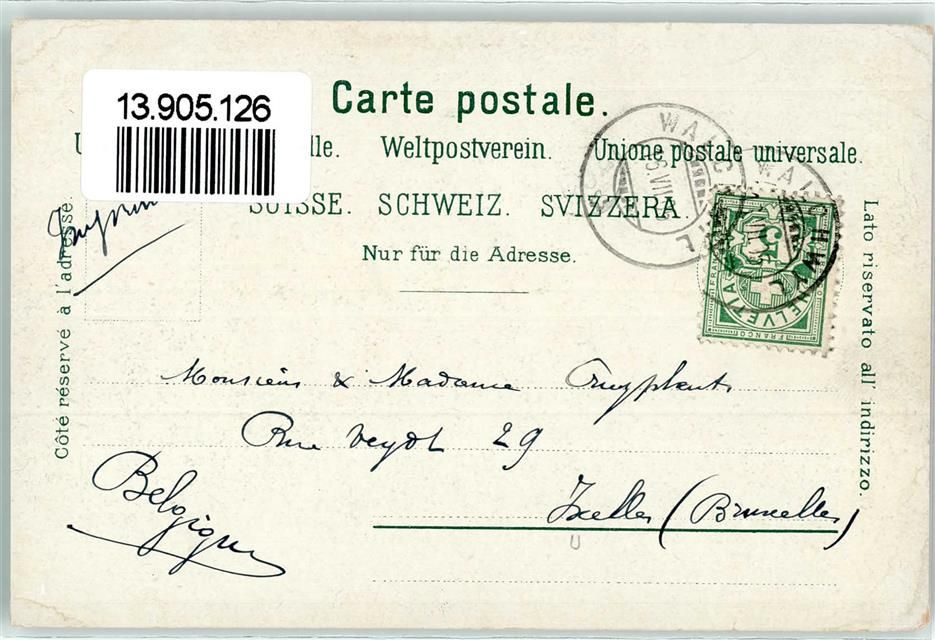 13.905.126
Carte postale.
Weltpostverein. Unione postale universale.
SUISSE. SCHWEIZ. SVIZZERA.
Nur für die Adresse.
Côté réservé à l'adresse.
Lato riservato all' indirizzo.
WALCHWYL
WALCHWYL
HELVETIA
FRANCO
5
Monsieur & Madame
Rue Veydt 29
Ixelles (Bruxelles)
Belgique
U